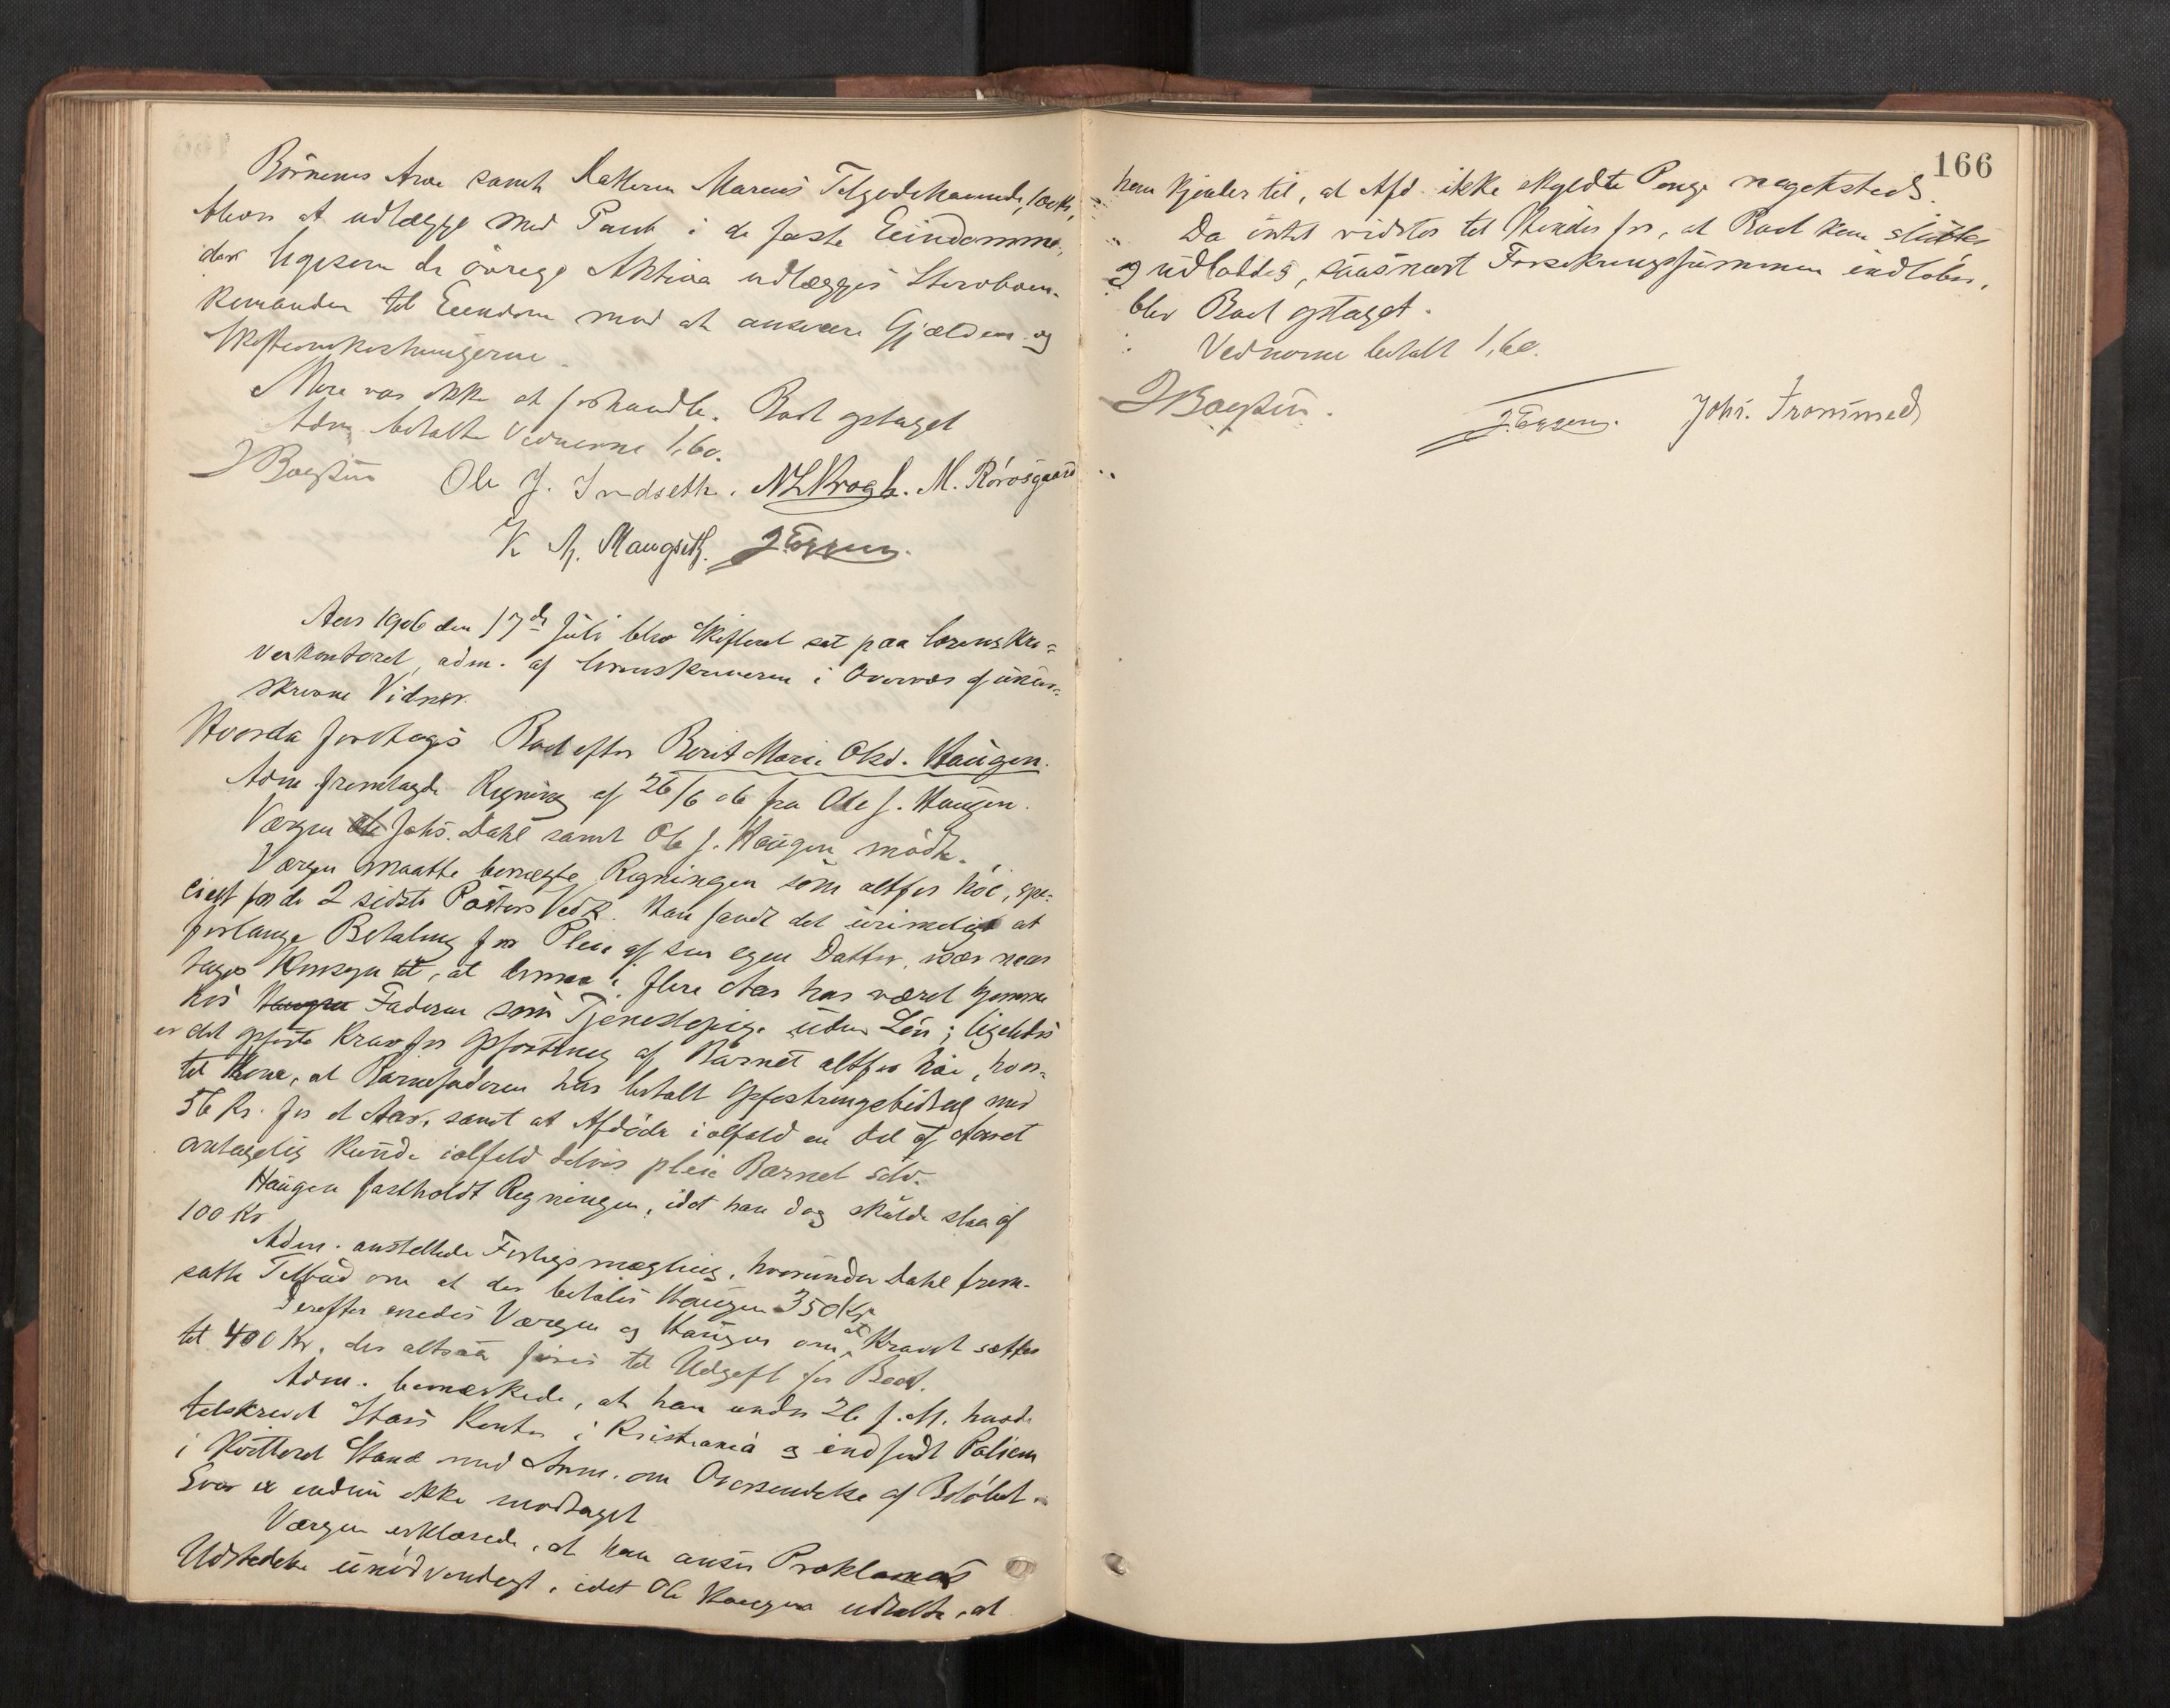 Börnenes Arv samt Datteren Marens Tilgodehavende, 100 Kr,
blev at udlægge med Pant i de faste Eiendomme,
der ligesom de övrige Aktiva udlægges Sterboen-
kemanden til Eiendom mod at ansvare Gjælden og
Skifteomkostningerne.
Mere var ikke at forhandle. Boet optaget
Adm. betalte Vidnerne 1,60.
Ole J. Indseth. N L Krogh. M. Rörosgaard
K A. Haugseth.
Aar 1906 den 17de Juli blev Skifteret sat paa Sorenskri-
verkontoret, adm. af Sorenskriveren i Overvær af under-
skrevne Vidner.
Hvorda foretoges Boet efter Berit Marie Olsd. Haugen.
Adm. fremlagde Regning af 26/6 06 fra Ole J. Haugen.
Værgen Ole Johs. Dahl samt Ole J. Haugen mödte.
Værgen maatte benægte Regningen som altfor höi, spe-
cielt for de 2 sidste Posters Vedk. Han fandt det urimeligt at
forlange Betaling for Pleie af sin egen Datter, især naar
tages Hensyn til, at denne i flere Aar har været hjemme
hos Haugen Faderen som Tjenestepige uden Lön; ligeledes
er det opförte Krav for Opfostring af Barnet altfor höi, hvor-
til kom, at Barnefaderen har betalt Opfostringsbidrag med
56 Kr. for et Aar, samt at Afdöde ialfald en Del af Aaret
antagelig kunde ialfald delvis pleie Barnet selv.
Haugen fastholdt Regningen, idet han dog skulde slaa af
100 Kr.
Adm. anstillede Forligsmægling, hvorunder Dahl frem-
satte Tilbud om at der betales Haugen 350 Kr.
Derefter enedes Værgen og Haugen om at Kravet sættes
til 400 Kr. der altsaa föres til Udgift for Boet.
Adm. bemærkede, at han under 26 f. M. havde
tilskrevet Stais Kontor i Kristiania og indsendt Policen
i kvitteret Stand med Anm. om Oversendelse af Belöbet.
Svar er endnu ikke modtaget
Værgen erklærede, at han anser Proklamas
Udstedelse unödvendigt, idet Ole Haugen udtalte, at
166
han kjender til, at Afd. ikke skyldte Penge nogetsteds.
Da intet vidstes til Hinder for, at Boet kan sluttes
og udloddes, saasnart Forsikringssummen indlöber,
blev Boet optaget.
Vidnerne betalt 1,60.
Johs. Trommed